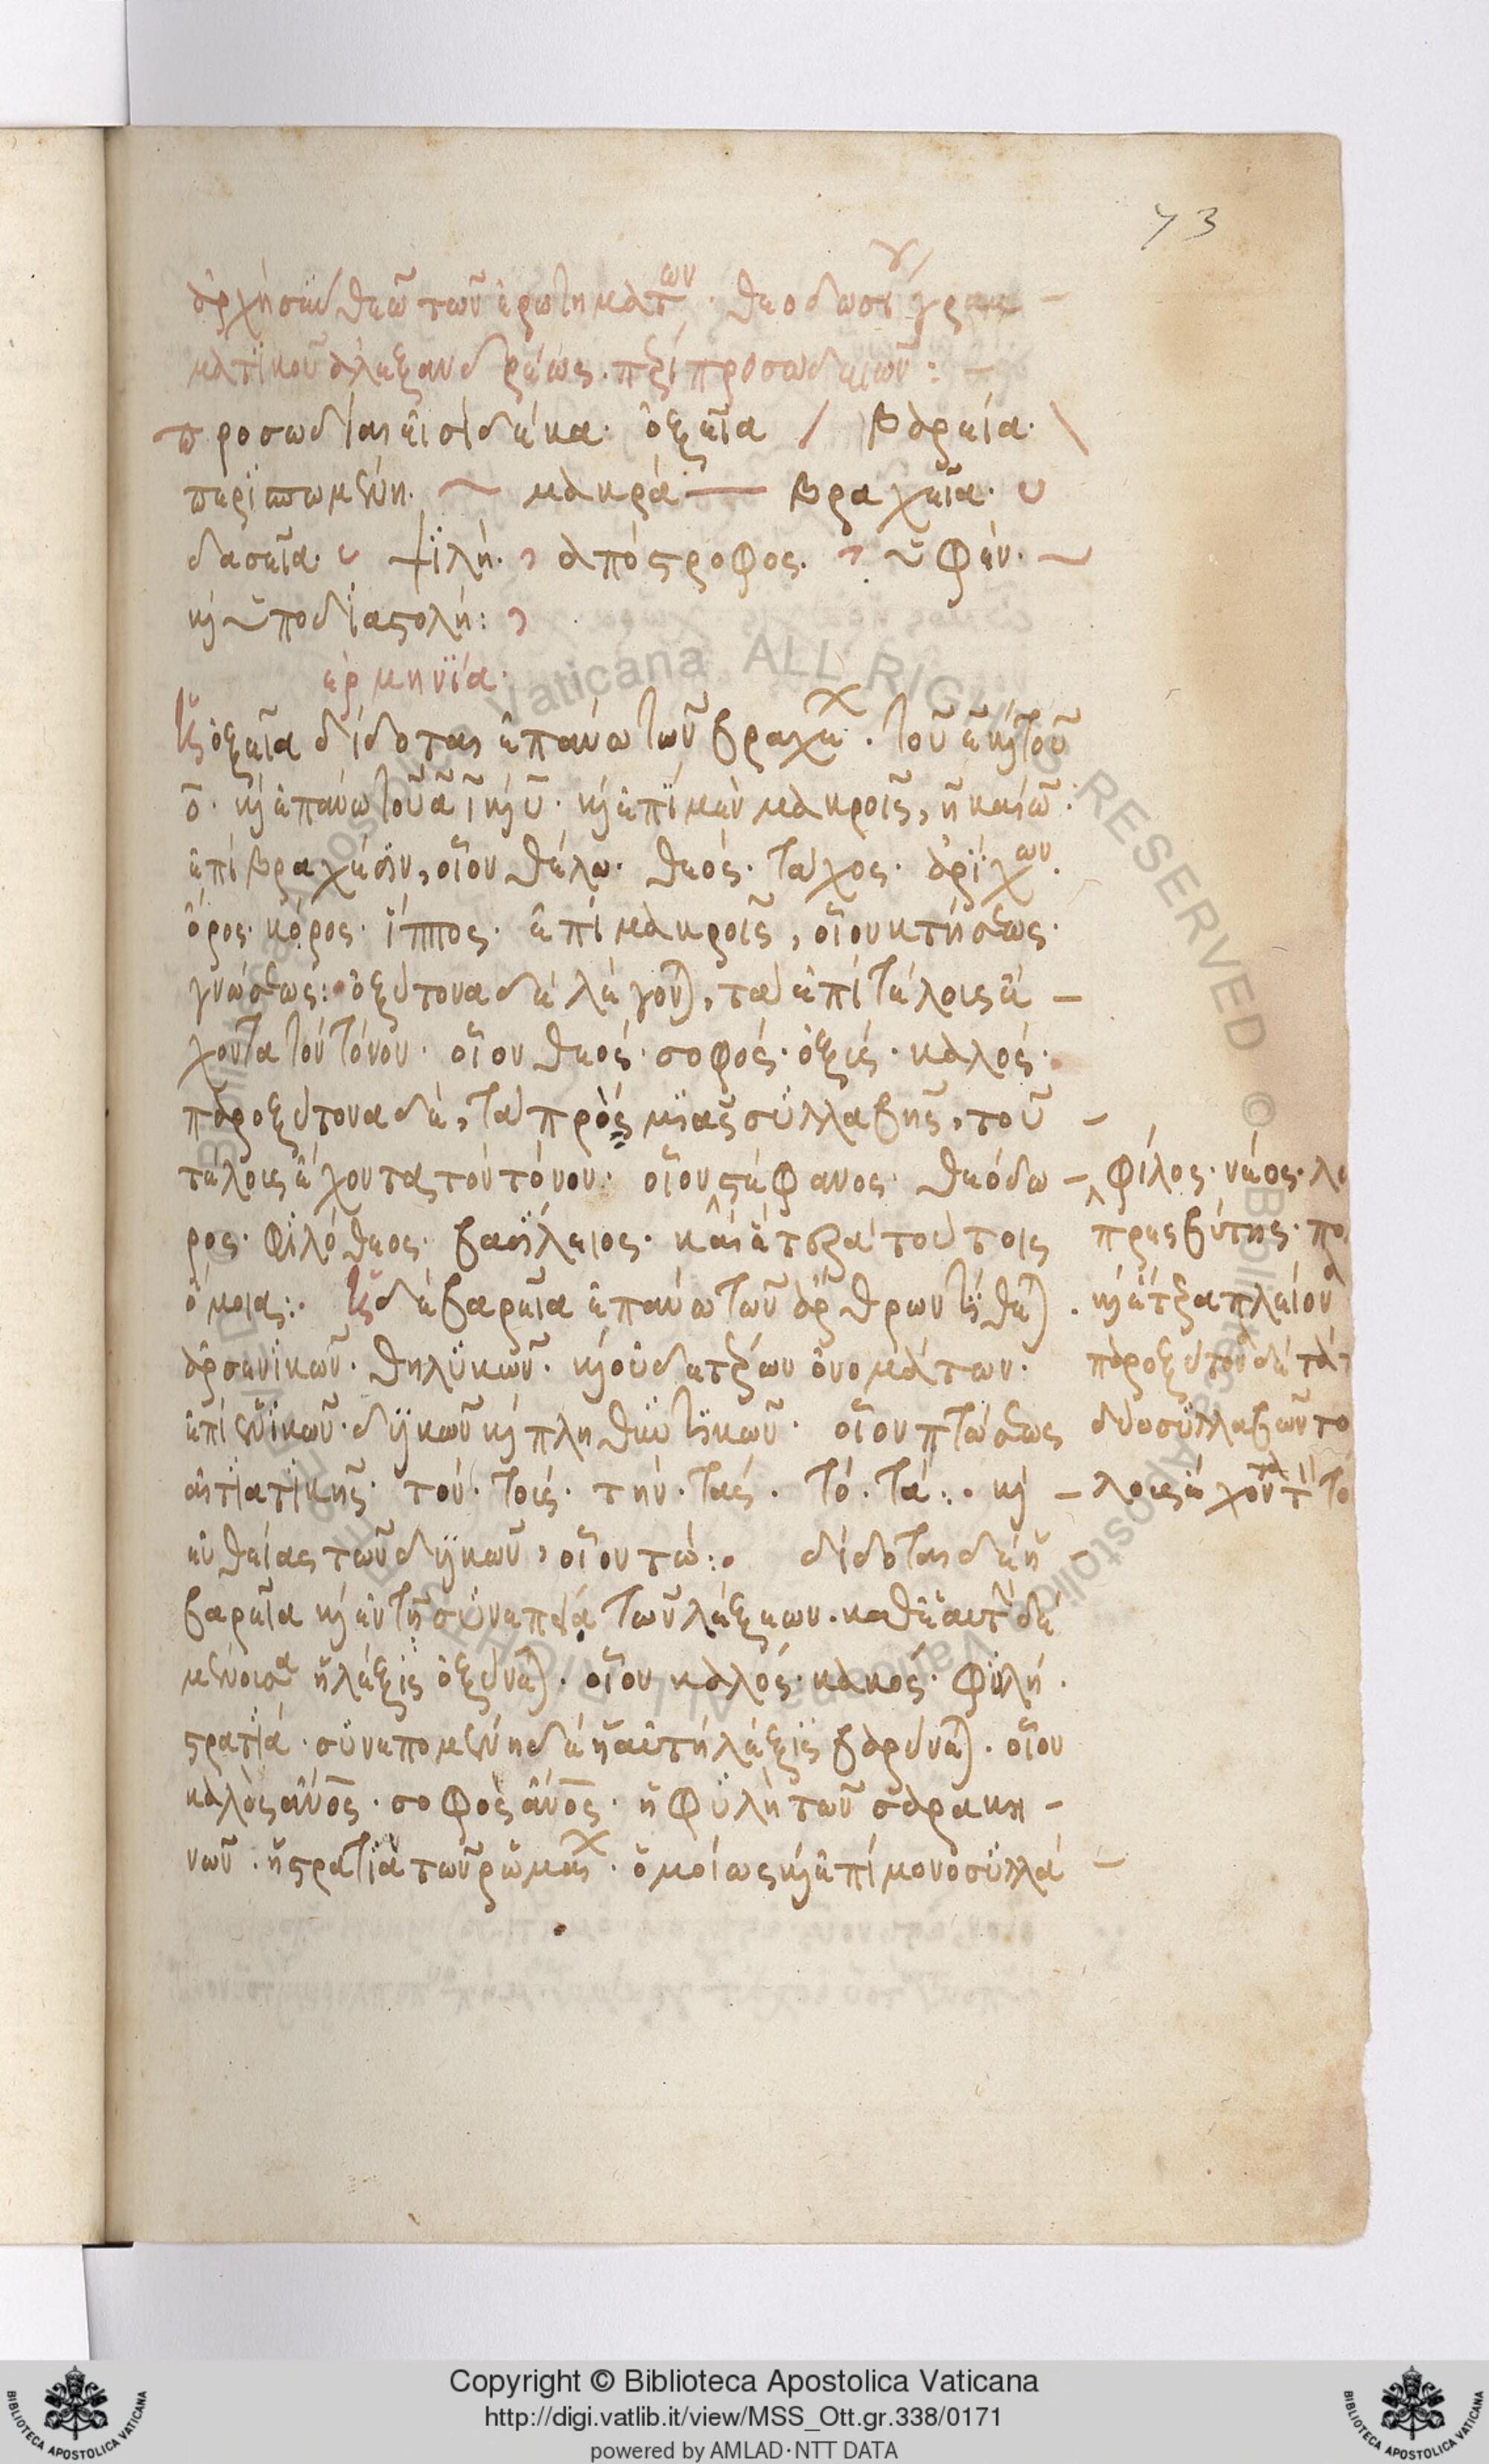 73
ἀρχὴ σὺν θεῶ τῶν ἐρωτημάτων. θεοδωσίου γραμ –
ματικοῦ ἀλεξανδρέως. περὶ προσωδειῶν : –
προσωδίαι εἰσὶ δέκα. ὀξεῖα / βαρεῖα. \
περισπωμένη. ~ μακρά — βραχεῖα. υ
δασεῖα. ψϊλή. ἀπόστροφος. ὑφέν.
κὴ ὑποδιαστολή:
ἑρμηνϊα.
ὀξεῖα δίδοται ἐπάνω τῶν βραχέων. τοῦ ε κὴ τοῦ
ο. κὴ ἐπάνω τοῦ α ι κὴ υ. κὴ ἐπὶ μὲν μακροῖς, η καὶ ω.
ἐπὶ βραχέσιν, οἷον θέλω. θεός. τάχος. ἀρίχων.
ὄρος. κόρος. ἵππος. ἐπὶ μακροῖς, οἷον κτήσεως.
γνώσεως: ὀξύτονα δὲ λέγονται, τὰ ἐπὶ τέλοις ἔ –
χοντα τὸν τόνον. οἷον θεός. σοφός. ὀξύς. καλός.
παροξύτονα δὲ, τὰ πρὸς μϊᾶς σϋλλαβῆς, τοῦ –
τέλοις ἔχοντας τὸν τόνον. οἷον στέφανος. θεόδω –
ρος. φϊλόθεος. βασίλειος. καὶ ἕτερα τούτοις
ὅμοια: δὲ βαρεῖα ἐπάνω τῶν ἄρθρων τίθεται.
ἀρσενϊκῶν. θηλϋκῶν. κὴ οὐδετέρων ὀνομάτων.
ἐπὶ ἑνϊκῶν. δϋϊκῶν κὴ πληθϋντϊκῶν. οἷον πτώσεως
αἰτιατικῆς. τόν. τούς. τήν. τάς. τό. τά: κὴ –
εὐθείας τῶν δϋϊκῶν, οἷον τώ: δίδοται δὲ ἡ
βαρεῖα κὴ ἐν τῆ σϋνεπεία τῶν λέξεων. καθ ἑαυτὴν δὲ
μένουσα ἡ λέξις ὀξύνεται. οἷον καλός. κακός. φϋλή.
στρατϊά. σϋνεπομένη δὲ ἡ αὐτὴ λέξϊς βαρύνεται. οἷον
καλὸς ἄνος. σοφὸς ἄνος. ἡ φϋλὴ τῶν σαρακη –
νῶν. ἡ στρατϊὰ τῶν ῥωμαίων. ὁμοίως κὴ ἐπὶ μονοσϋλλά –
φίλος. νέος. λε
πρεσβύτης. πο
κὴ ἕτερα πλείον
παροξύτον δὲ τὰ
δύο σϋλλαβῶν το
λοις ἔχοντα τὸ
Copyright © Biblioteca Apostolica Vaticana
http://digi.vatlib.it/view/MSS_Ott.gr.338/0171
powered by AMLAD·NTT DATA